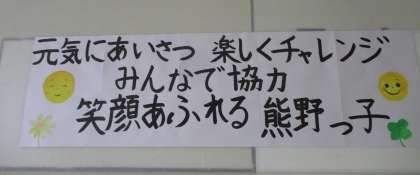 元気にあいさつ 楽しくチャレンジ
みんなで協力
笑顔あふれる 熊野っ子